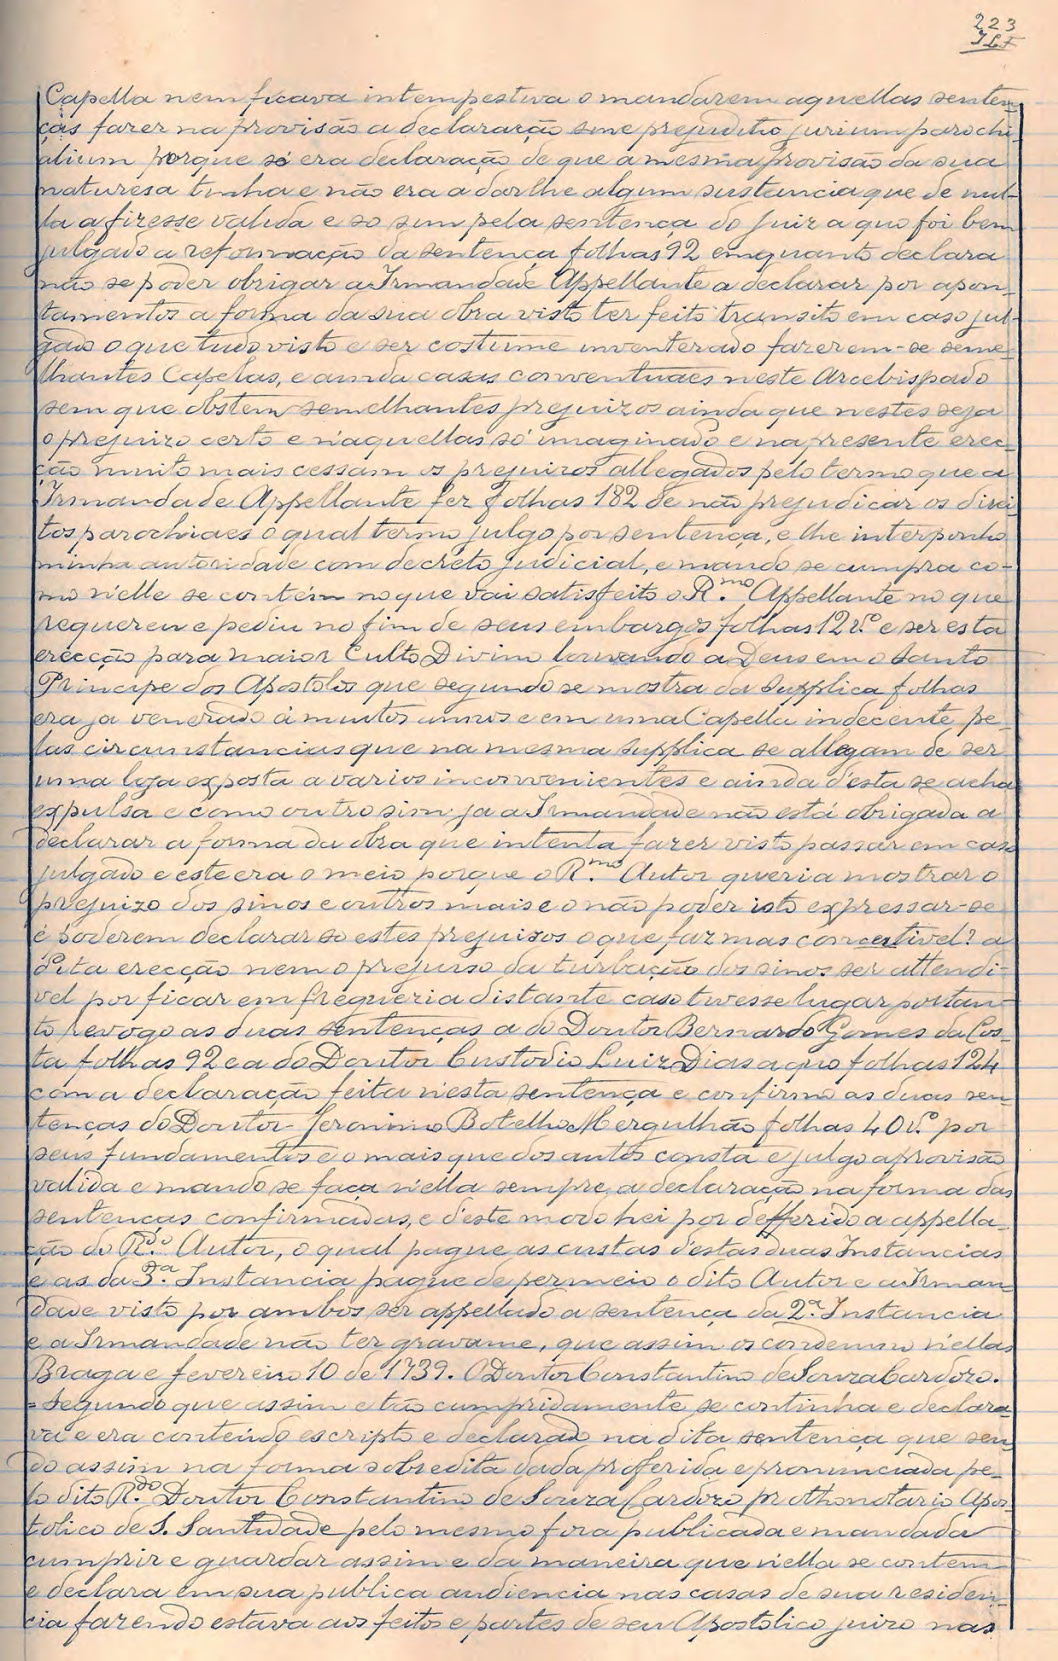 223
Capella nem ficava intempestiva o mandarem aquellas senten-
ças fazer na provisão a declararção sine prejuditio jurium parochi-
alium porque só era declaração de que a mesma provisão da sua
naturesa tinha e não era a darlhe algum sustancia que de nul-
la a fizesse valida e so sim pela sentença do Juiz a quo foi bem
julgado a reformação da sentença folhas 92 emquanto declara
não se poder obrigar a Irmandade Appellante a declarar por apon-
tamentos a forma da sua obra visto ter feito transito em caso jul-
gado o que tudo visto e ser costume inventerado fazerem-se seme-
lhantes Capelas, e ainda casas conventuaes neste Arcebispado
sem que obstem semelhantes prejuizos ainda que nestes seja
o prejuizo certo e n'aquellas só imaginado e na presente erec-
ção muito mais cessam os prejuizos allegados pelo termo que a
Irmandade Appellante fez folhas 182 de não prejudicar os direi-
tos parochiaes o qual termo julgo por sentença, e lhe interponho
minha autoridade com decreto judicial, e mando se cumpra co-
mo n'elle se contém no que vai satisfeito o R.mo Appellante no que
requereu e pediu no fim de seus embargos folhas 12 v.º e ser esta
erecção para maior Culto Divino louvando a Deus em o Santo
Principe dos Apostolos que segundo se mostra da supplica folhas
era ja venerado á muitos annos e em uma Capella indecente pe-
las circunstancias que na mesma supplica se allegam de ser
uma loja exposta a varios inconvenientes e ainda d'esta se acha
expulsa e como outro sim ja a Irmandade não está obrigada a
declarar a forma da obra que intenta fazer visto passar em caso
julgado e este era o meio porque o R.mo Autor queria mostrar o
prejuizo dos sinos e outros mais e o não poder isto expressar-se
é poderem declarar so estes prejuizos o que faz mas concertivel? a
dita erecção nem o prejuiso da turbação dos sinos ser attendi-
vel por ficar em fregueria distante caso tivesse lugar portan-
to revogo as duas sentenças a do Doutor Bernardo Gomes da Cos-
ta folhas 92 e a do Doutor Custodio Luiz Dias a quo folhas 124
com a declaração feita n'esta sentença e confirmo as duas sen-
tenças do Doutor Jeronimo Botelho Mergulhão folhas 40 v.º por
seus fundamentos e o mais que dos autos consta e julgo a provisão
valida e mando se faça n'ella sempre, a declaração na forma das
sentenças confirmadas, e d'este modo hei por defferido a appella-
ção do R.do Autor, o qual pague as custas d'estas duas Instancias
e as da 3.ª Instancia pague de permeio o dito Autor e a Irman-
dade visto por ambos ser appellado a sentença da 2.ª Instancia
e a Irmandade não ter gravame, que assim os condemno n'ellas
Braga e fevereiro 10 de 1739. O Doutor Constantino de Souza Cardozo.
= Segundo que assim e tão cumpridamente se continha e declara-
va e era conteúdo escripto e declarado na dita sentença que sen-
do assim na forma sobredita dada proferida e pronunciada pe-
lo dito R.do Doutor Constantino de Souza Cardozo prothonotario Apos-
tolico de S. Santidade pelo mesmo fora publicada e mandada
cumprir e guardar assim e da maneira que n'ella se contem
e declara em sua publica audiencia nas casas de sua residen-
cia fazendo estava aos feitos e partes de seu Apostolico juizo nas